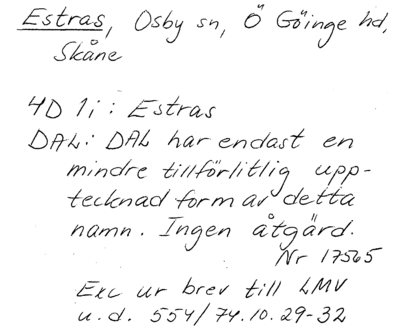 Estras, Osby sn, Ö Göinge hd,
Skåne
4D 1i: Estras
DAL: DAL har endast en
mindre tillförlitlig upp-
tecknad form av detta
namn. Ingen åtgärd.
Nr 17565
Exc ur brev till LMV
u.d. 554/74.10.29-32